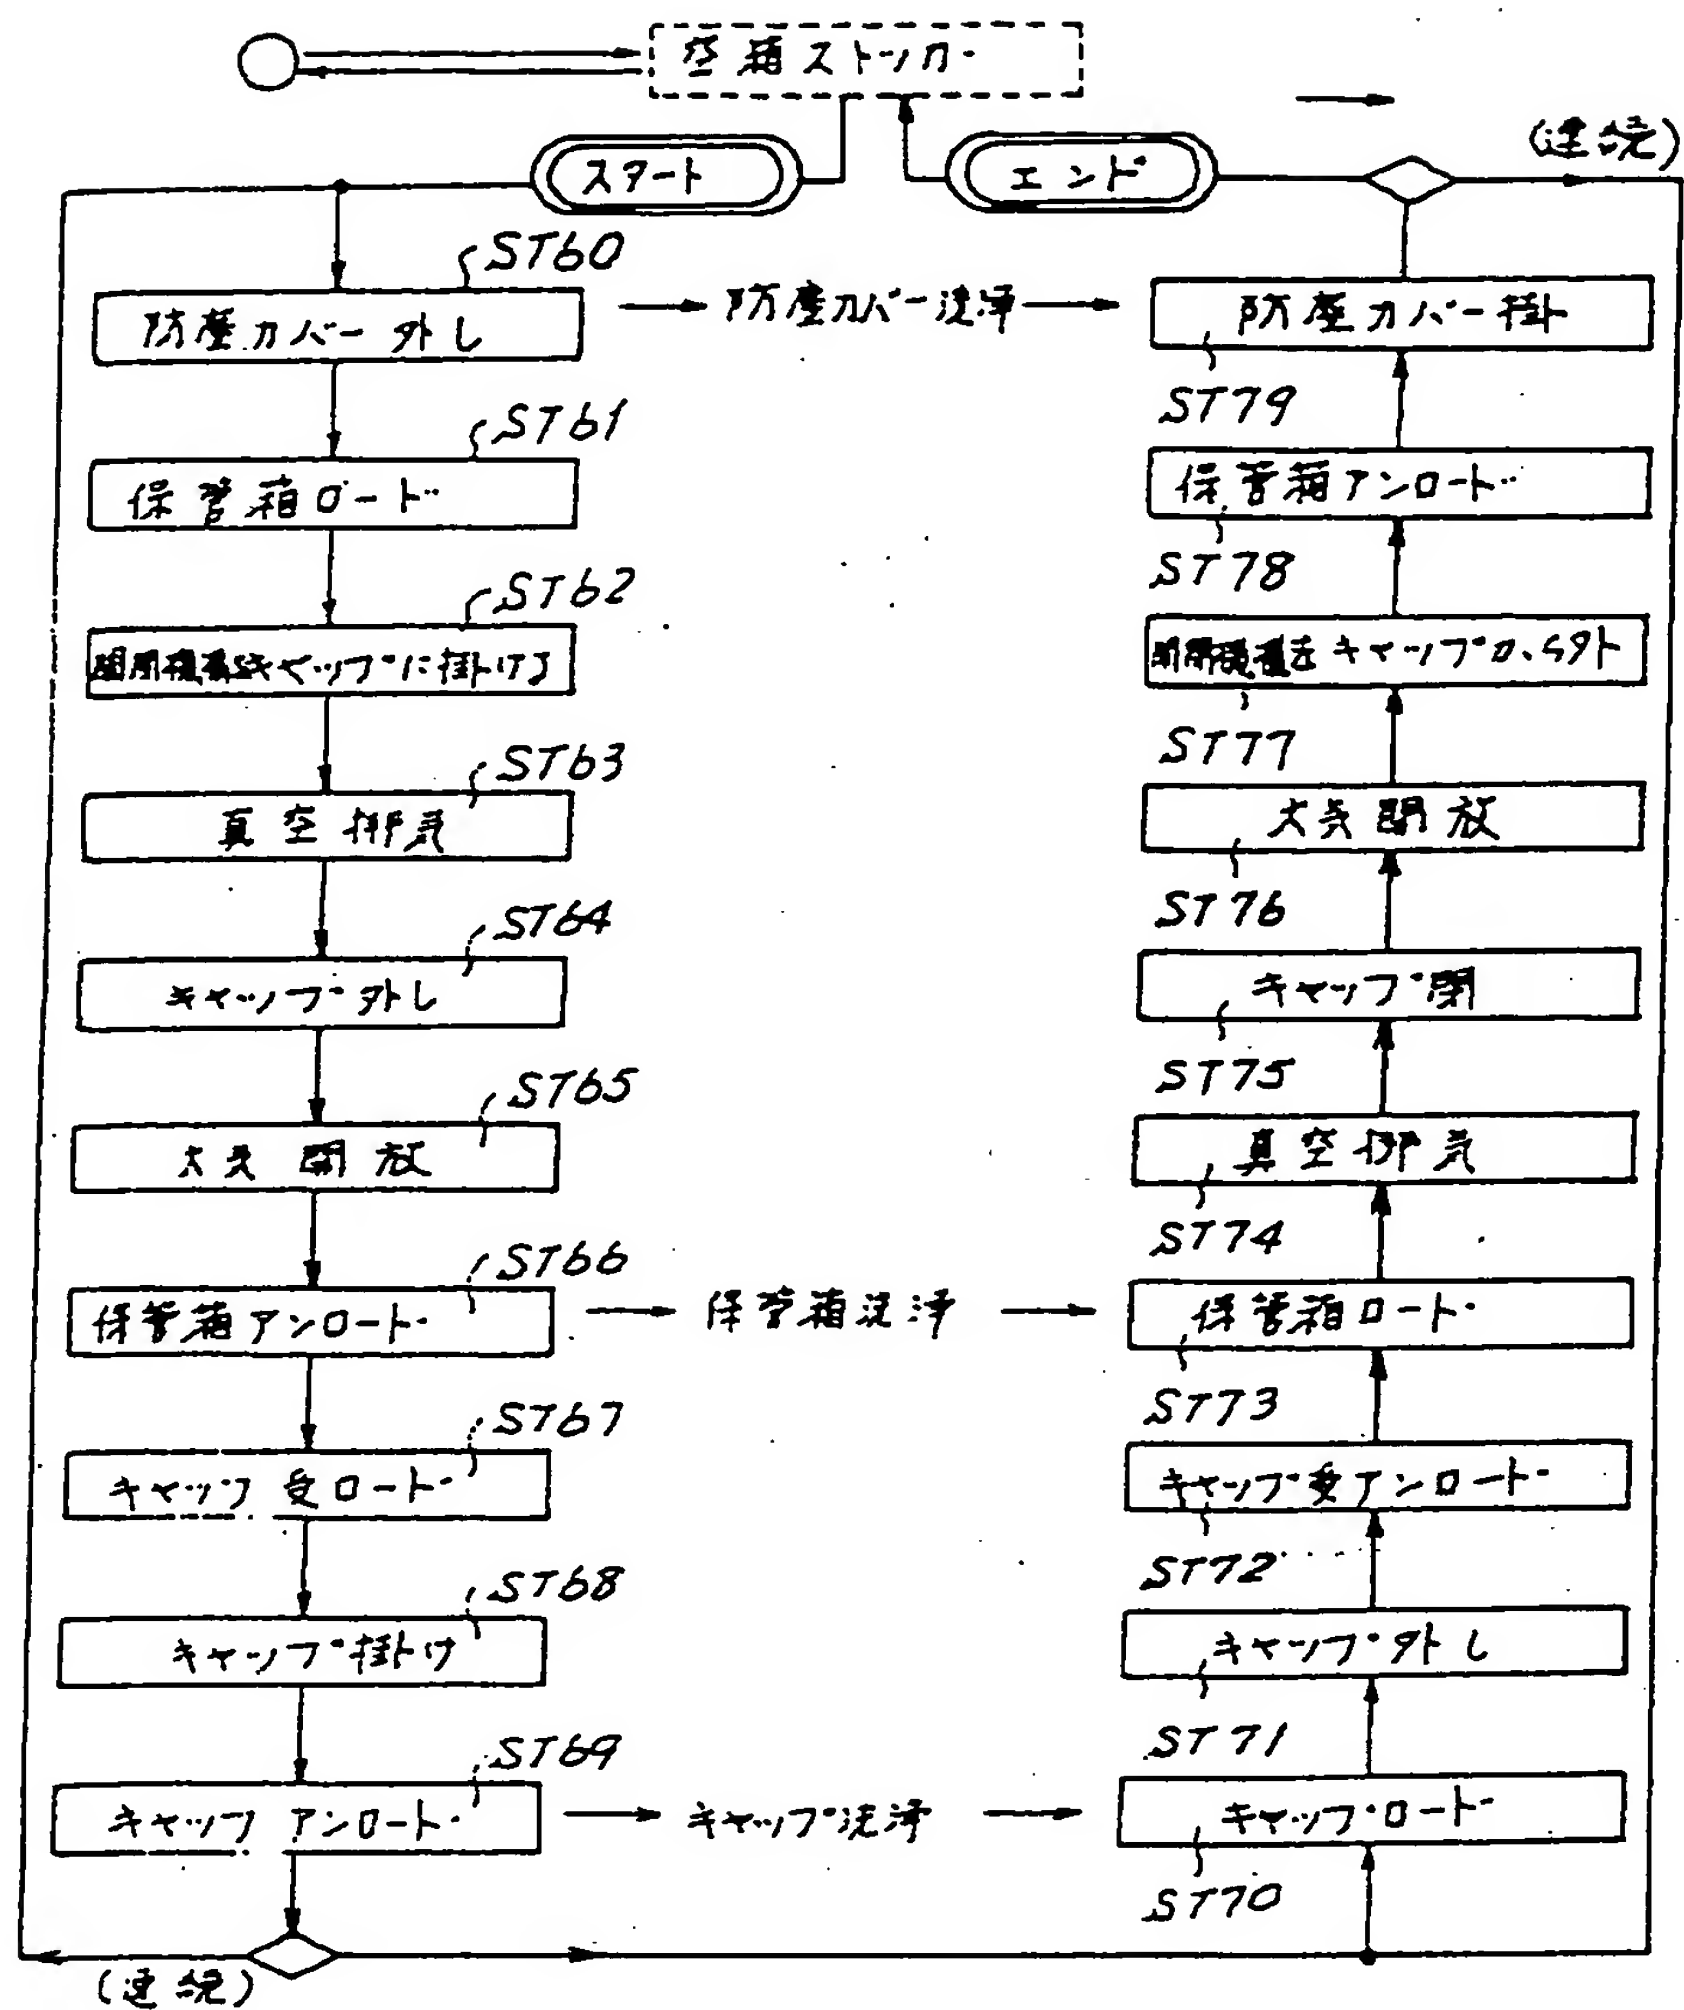 空箱ストッカー
スタート
エンド
(連続)
ST60
防塵カバー外し
防塵カバー洗浄
防塵カバー掛
ST79
ST61
保管箱ロード
保管箱アンロード
ST78
ST62
開閉機構をキャップに掛ける
開閉機構をキャップから外ト
ST77
ST63
真空排気
大気開放
ST76
ST64
キャップ外し
キャップ閉
ST75
ST65
大気開放
真空排気
ST74
ST66
保管箱アンロード
保管箱洗浄
保管箱ロード
ST73
ST67
キャップ受ロード
キャップ受アンロード
ST72
ST68
キャップ掛け
キャップ外し
ST71
ST69
キャップアンロード
キャップ洗浄
キャップロード
ST70
(連続)